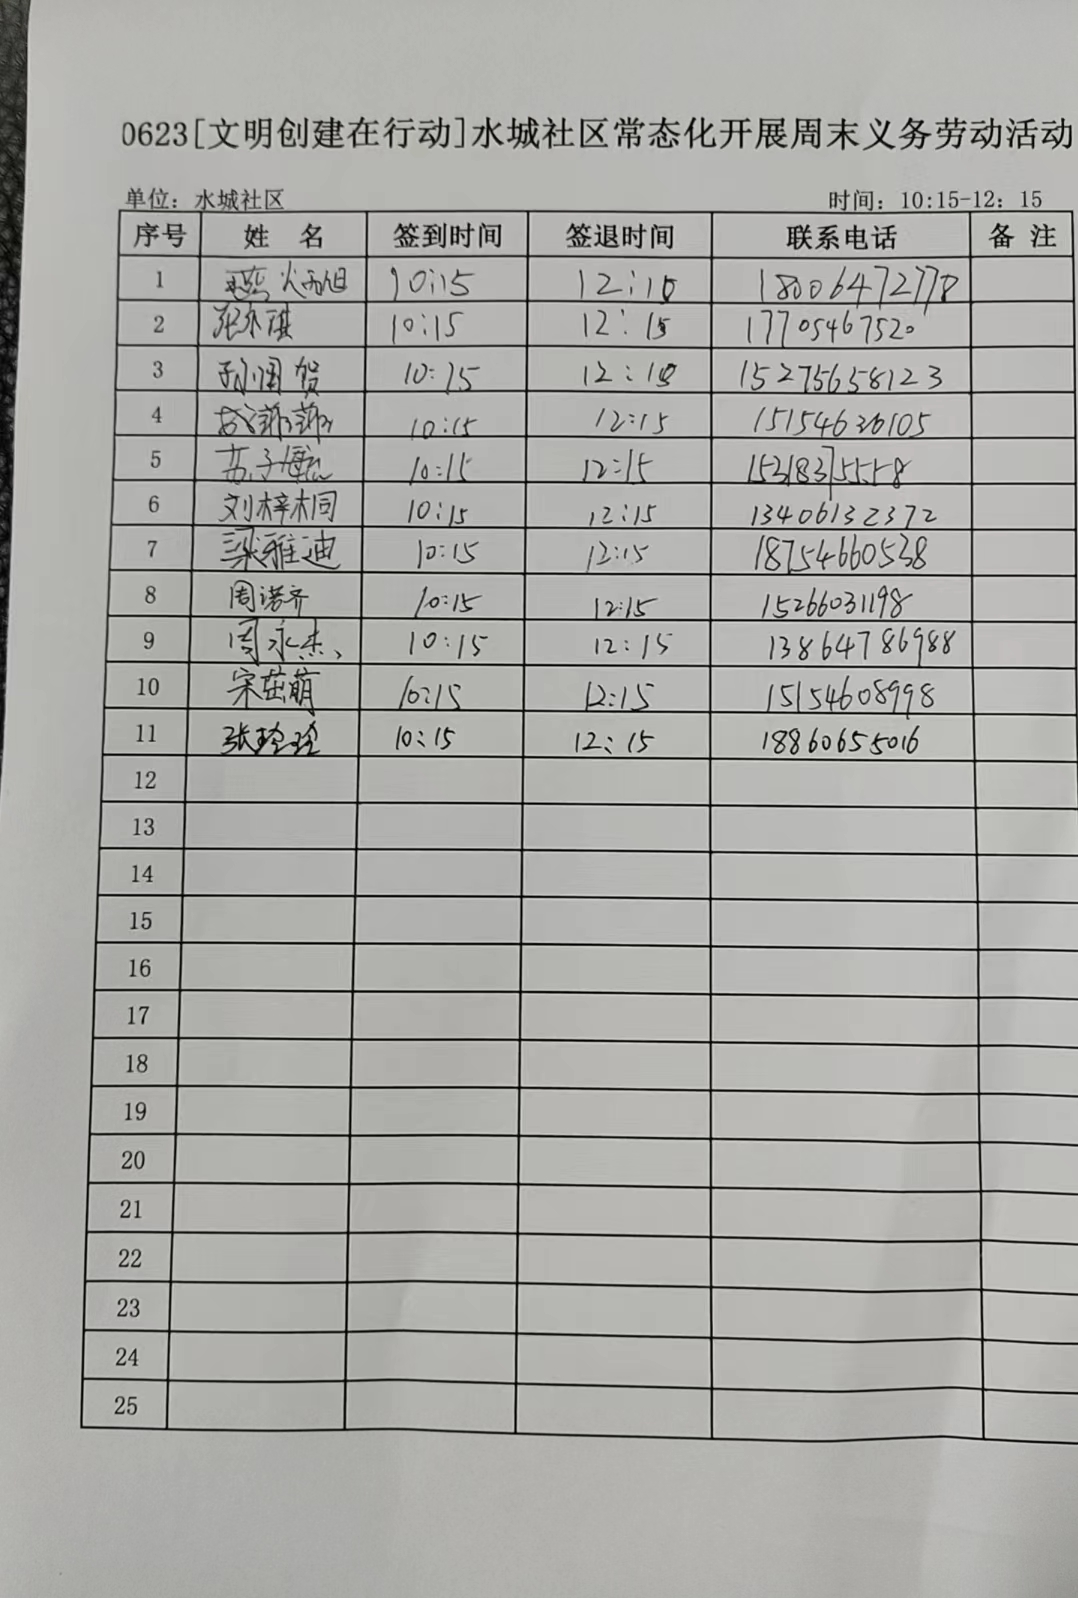 0623[文明创建在行动]水城社区常态化开展周末义务劳动活动
单位：水城社区 时间：10:15-12：15
序号 姓 名 签到时间 签退时间 联系电话 备 注
1 10:15 12:15 18006472778
2 10:15 12:15 17705467520
3 孙国贺 10:15 12:15 15275658123
4 10:15 12:15 15154636105
5 苏子航 10:15 12:15 15318375558
6 刘梓桐 10:15 12:15 13406132372
7 梁雅迪 10:15 12:15 18754660538
8 周诺齐 10:15 12:15 15266031198
9 周永杰 10:15 12:15 13864786988
10 宋茁萌 10:15 12:15 15154608998
11 张玲玲 10:15 12:15 18860655016
12
13
14
15
16
17
18
19
20
21
22
23
24
25